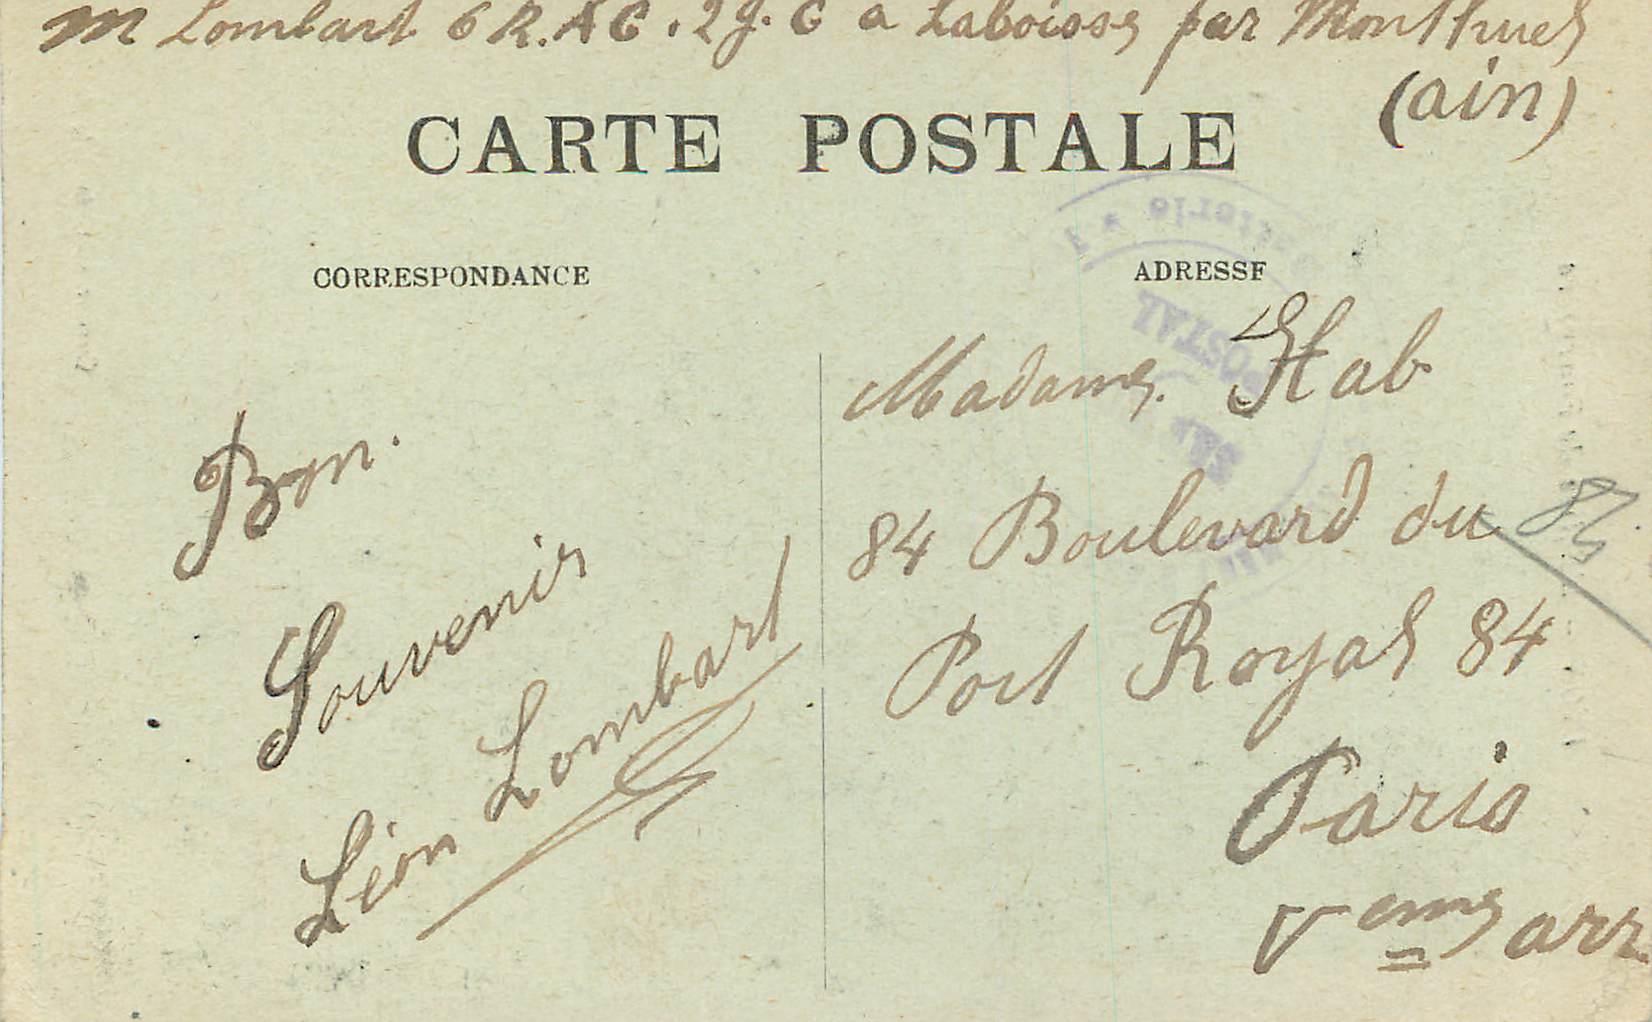 M Lombart 6 R.A C. 2 J. C a Laboisse par Montluel
(ain)
CARTE POSTALE
CORRESPONDANCE
ADRESSE
Bon.
Souvenir
Léon Lombart
Madame. Hab
84 Boulevard du
Port Royal 84
Paris
Veme arr
POSTAL